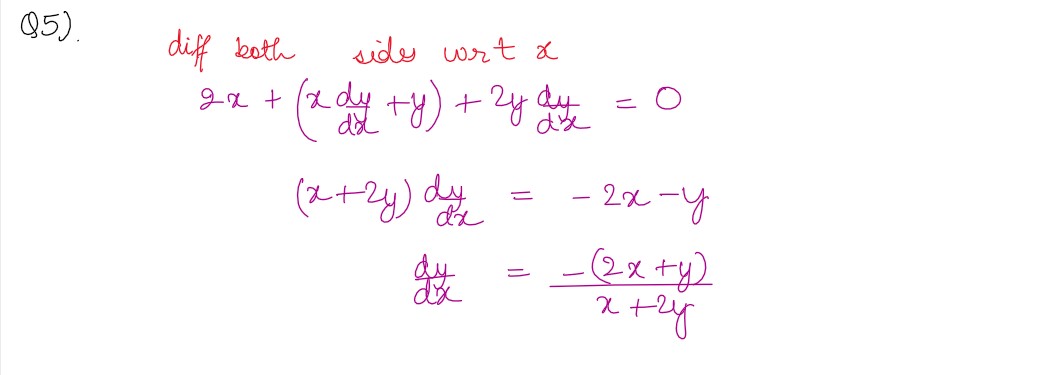 Q5).
diff both sides wrt x
2x + (x dy/dx + y) + 2y dy/dx = 0
(x+2y) dy/dx = - 2x - y
dy/dx = -(2x+y)/x+2y